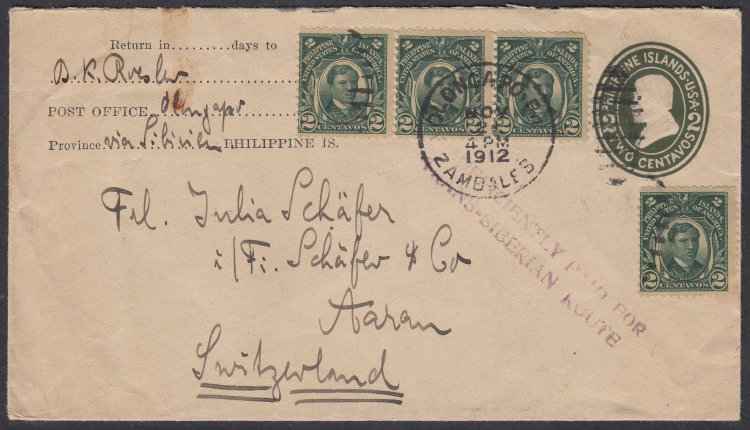 Return in.........days to
POST OFFICE
Province via Sibirien PHILIPPINE IS.
2 PHILIPPINE ISLANDS 2
UNITED STATES OF AMERICA
2 CENTAVOS 2
2 PHILIPPINE ISLANDS 2
UNITED STATES OF AMERICA
2 CENTAVOS 2
2 PHILIPPINE ISLANDS 2
UNITED STATES OF AMERICA
2 CENTAVOS 2
OLONGAPO, P.I.
4 PM
1912
ZAMBALES
PHILIPPINE ISLANDS-U.S.A.
2 TWO CENTAVOS 2
Frl. Julia Schäfer
i/Fi. Schäfer & Co
Aarau
Switzerland
PAID FOR
TRANS-SIBERIAN ROUTE
2 PHILIPPINE ISLANDS 2
UNITED STATES OF AMERICA
2 CENTAVOS 2